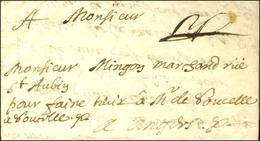 A Monsieur
Monsieur Mingon marchand rue
St Aubin
pour faire tenir a Mr de Poucelle
a Poucelle
a Angers